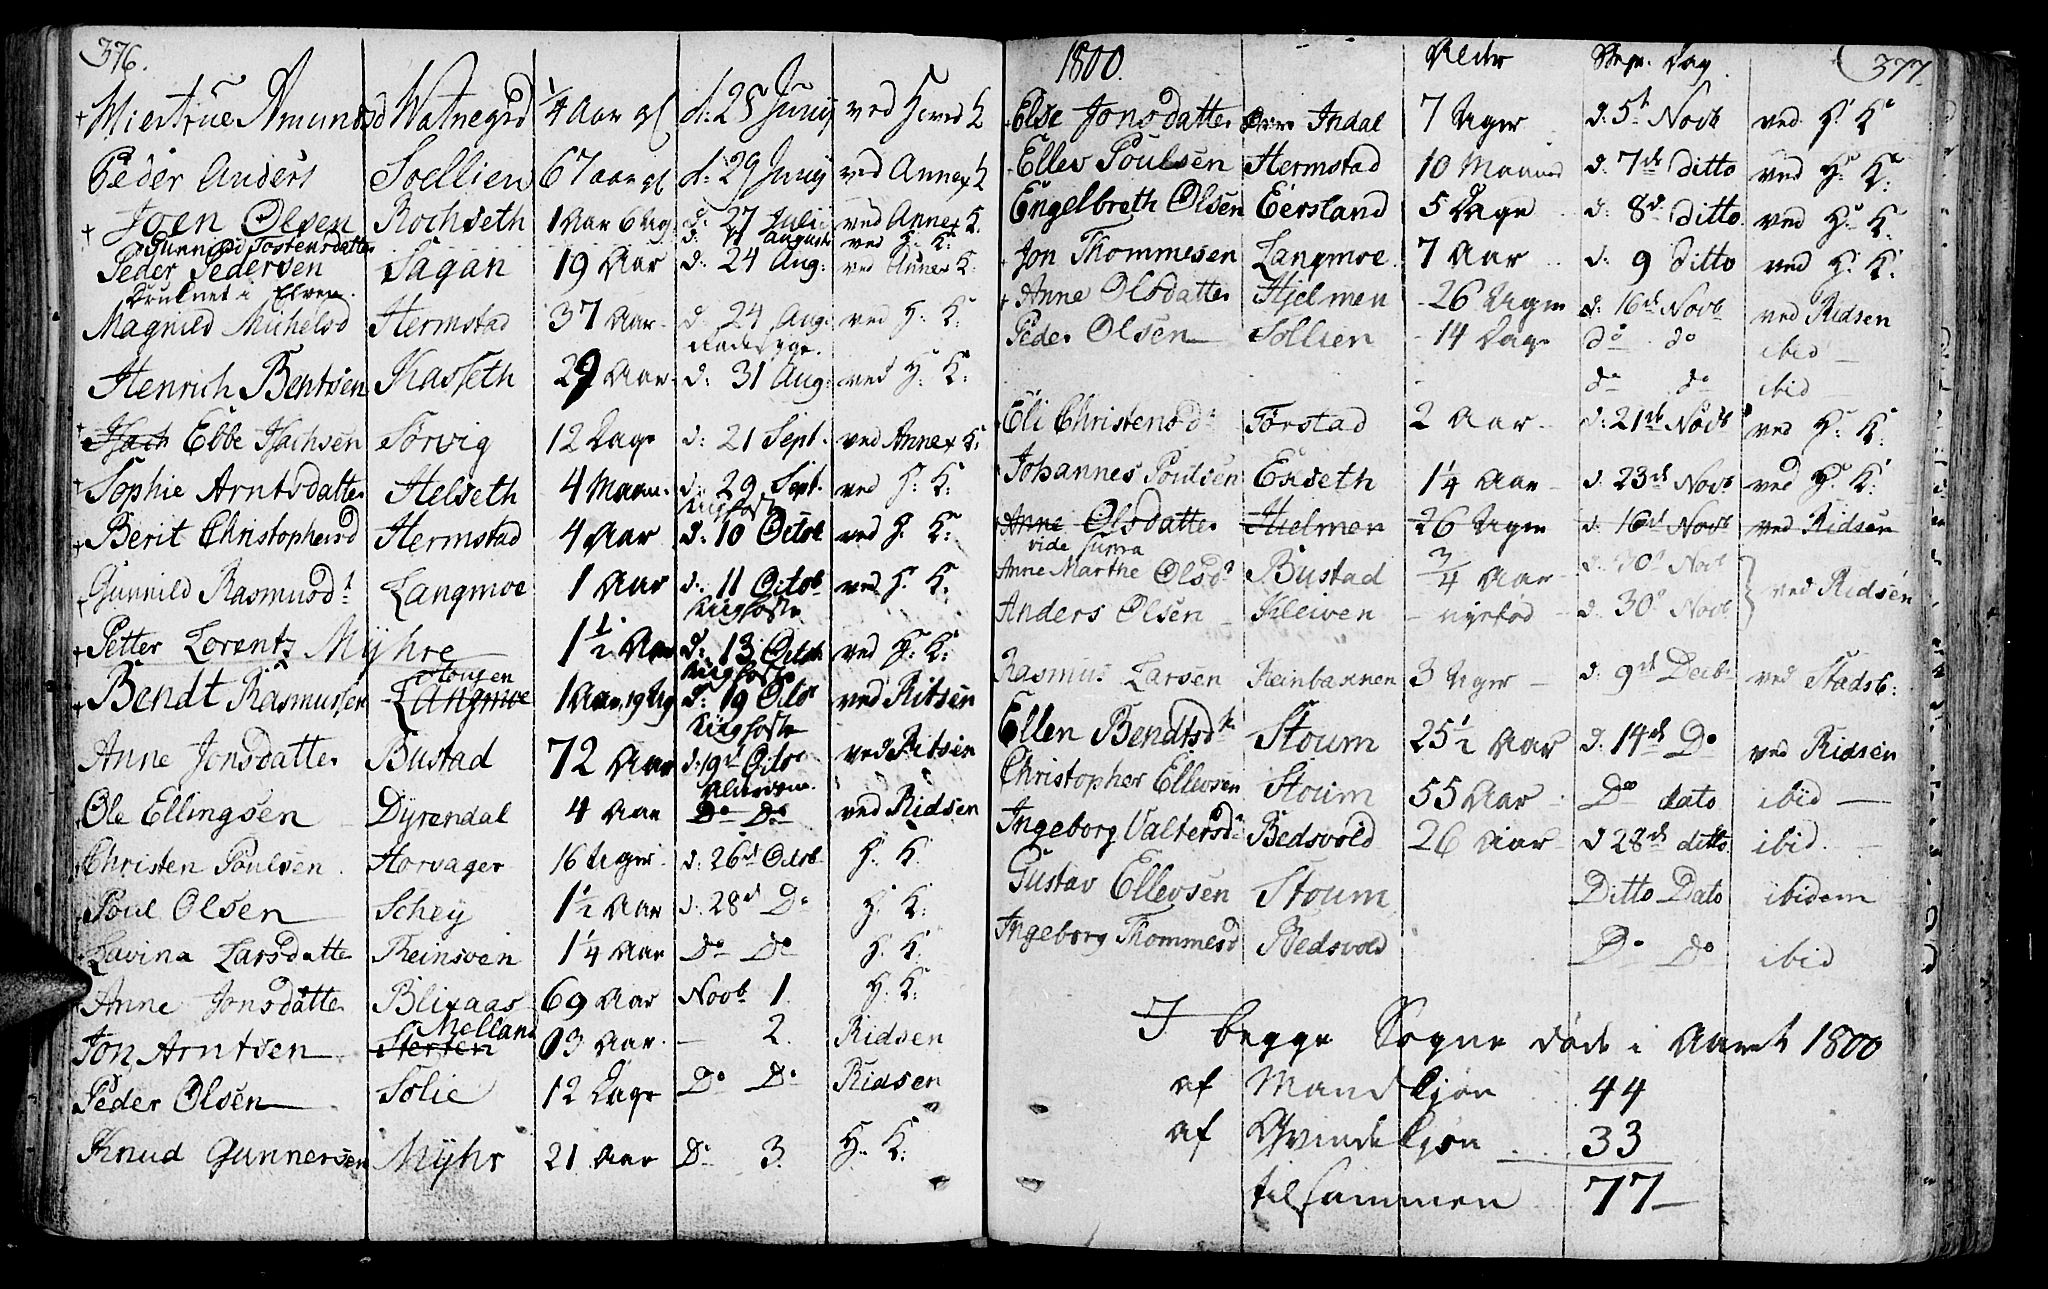 376.
Miertrue Amunds d Watnegrd 1/4 Aar gl d: 25 Junij ved Hoved K
Peder Anders Soellien 67 aar gl d: 29 Junij ved Annex K
Joen Olsen Rochseth 1 Aar 6 Ug d: 27 Julii ved Annex K.
Gunnild Tostensdatter d. 17 august ved H: K:
Peder Pedersen Sagan 19 Aar d: 24 Aug: ved Annex K:
druknet i Elven.
Magnild Michelsd Hermstad 37 Aar. d: 24 Aug: ved H: K:
Henrich Bentsen Kasseth 29 Aar. d: 31 Aug: ved H: K:
Isach Ebbe Isachsen Sørvig 12 Dage d: 21 Sept. ved Annex K:
Sophie Arntsdatter Helseth 4 Maan. d: 29 Sept. ved H: K:
Kighoste
Berit Christophersd Hermstad 4 Aar d: 10 Octob ved H: K:
Gunnild Rasmusd:r Langmoe 1 Aar d: 11 Octob ved H: K:
Kighoste
Petter Lorentz Myhre 1 1/2 Aar d: 13 Octob ved H: K:
Kighoste
Stousen
Bendt Rasmussen Langmoe 1 Aar 19 Ug d: 19 Octo ved Ritsen
Kighoste
Anne Jonsdatter Bustad 72 Aar d: 19d Octo ved Ritsen
Alderdom.
Ole Ellingsen Dyrendal 4 Aar Do Do ved Ridsen
Christen Poulsen Horvager 16 Uger d: 26d Octob H: K:
Poul Olsen Schey 1 1/2 Aar d: 28d Do H: K:
Lavina Larsdatte Reinsven 1 1/4 Aar Do Do H: K:
Anne Jonsdatter Blixaas 69 Aar Novb 1. H: K:
Melland
Jon Arntsen Stersten 03 Aar. — 2. Ridsen
Peder Olsen Solie 12 Dage Do Do Ridsen
Knud Gunnersen Myhr 21 Aar Do 3. H: K:
1800. Alder Begr. Dag. 377.
Else Jonsdatter Indal 7 Uger d: 5t Novb ved H: K
Ellev Poulsen Hermstad 10 Maaned d: 7de ditto ved H: K:
Engelbreth Olsen Eersland 5 Dage d: 8d ditto. ved H: K:
Jon Thommesen Langmoe. 7 Aar d: 9 ditto ved H: K:
Anne Olsdatter Hjelmen 26 Uger d: 16de Novb ved Ridsen
Peder Olsen Sollien 14 Dage do do ibid
do do ibid
Eli Christensd:r Torstad 2 Aar. d: 21de Novb ved H: K:
Johannes Poulsen Exseth 1 1/4 Aar d: 23de Novb ved H: K:
Anne Olsdatter Hielmen 26 Uger d: 16d Novb ved Ridsen
vide supra
Anne Marthe Olsd:r Bustad 3/4 Aar d: 30d Novb ved Ridsen
Anders Olsen Kleiven nyefød d: 30d Novb
Rasmus Larsen Reinbakken 3 Uger d: 9de Decb: ved Stadsb:
Ellen Bendtsd:r Stoum 25 1/2 Aar d: 14de Do ved Ridsen
Christopher Ellevsen Stoum 55 Aar Do dato ibid
Ingeborg Valtersd:r Bedsvold 26 Aar d 28de ditto ibid.
Gustav Ellevsen Stoum Ditto Dato ibidem
Ingeborg Thommesd Bedsvold Do Do ibid
I begge Sogne døde i Aaret 1800
af Mandkjøn 44
af Qvindekjøn 33
tilsammen 77